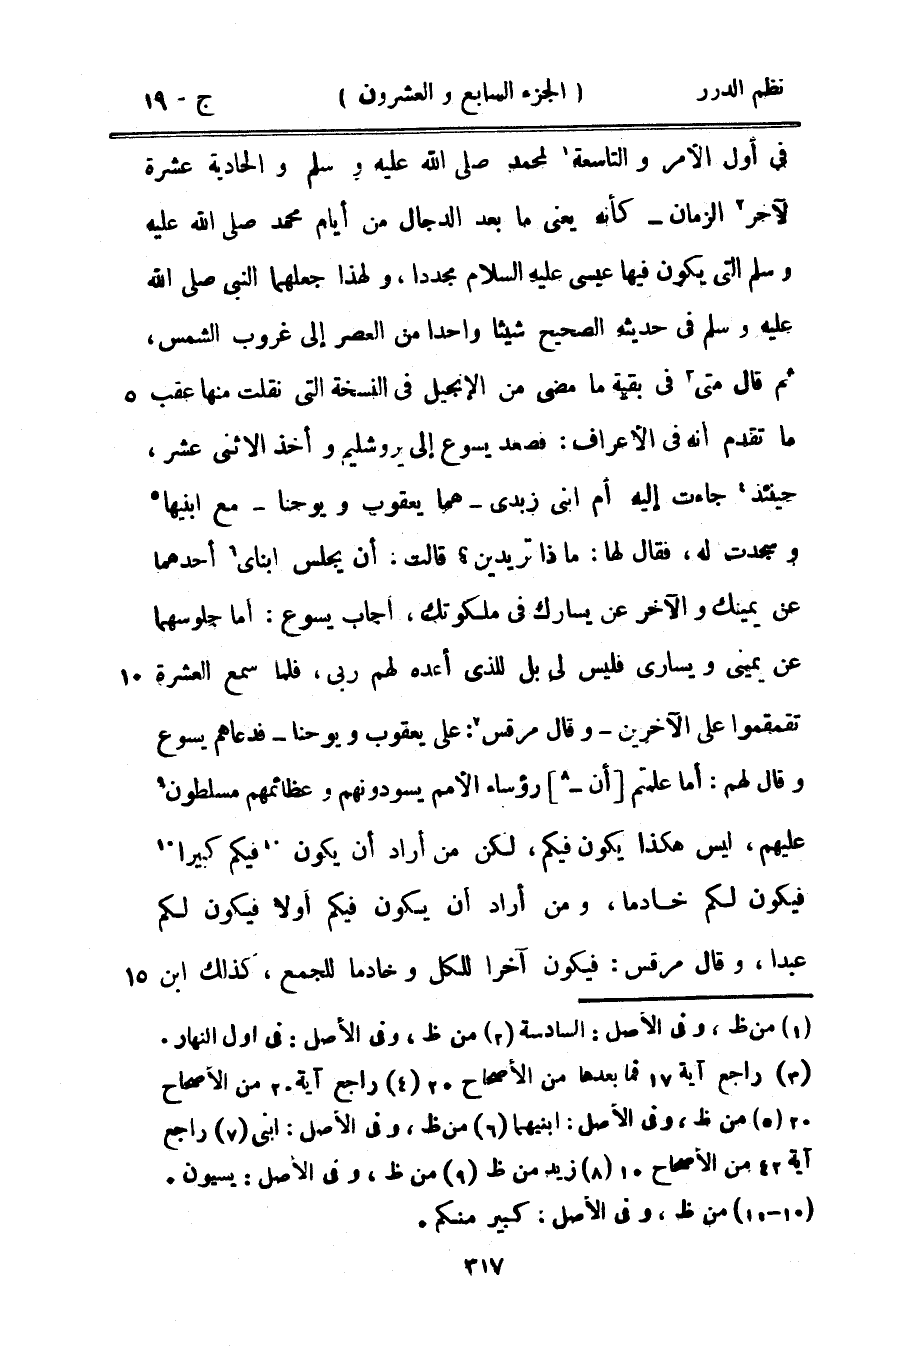 نظم الدرر ( الجزء السابع و العشرون ) ج - ١٩
فى أول الأمر و التاسعة١ لمحمد صلى الله عليه و سلم و الحادية عشرة
لآخر٢ الزمان ــ كأنه يعنى ما بعد الدجال من أيام محمد صلى الله عليه
و سلم التى يكون فيها عيسى عليه السلام مجددا ، و لهذا جعلهما النبى صلى الله
عليه و سلم فى حديثه الصحيح شيئا واحدا من العصر إلى غروب الشمس ،
ثم قال متى٣ فى بقية ما مضى من الإنجيل فى النسخة التى نقلت منها عقب ٥
ما تقدم أنه فى الأعراف : فصعد يسوع إلى يروشليم و أخذ الاثنى عشر ،
حينئذ٤ جاءت إليه أم ابنى زبدى ــ هما يعقوب و يوحنا ــ مع ابنيها٥
و سجدت له ، فقال لها : ما ذا تريدين ؟ قالت : أن يجلس ابناى٦ أحدهما
عن يمينك و الآخر عن يسارك فى ملكوتك ، أجاب يسوع : أما جلوسهما
عن يمينى و يسارى فليس لى بل للذى أعده لهم ربى ، فلما سمع العشرة ١٠
تقمقموا على الآخرين ــ و قال مرقس٧ : على يعقوب و يوحنا ــ فدعاهم يسوع
و قال لهم : أما علمتم [ أن ــ٨ ] رؤساء الأمم يسودونهم و عظائمهم مسلطون٩
عليهم ، ليس هكذا يكون فيكم ، لكن من أراد أن يكون ١٠فيكم كبيرا١٠
فيكون لكم خادما ، و من أراد أن يكون فيكم أولا فيكون لكم
عبدا ، و قال مرقس : فيكون آخرا للكل و خادما للجمع ، كذلك ابن ١٥
(١) من ظ ، و فى الأصل : السادسة (٢) من ظ ، وفى الأصل : فى اول النهار .
(٣) راجع آية ١٧ فما بعدها من الأصحاح ٢٠ (٤) راجع آية ٢٠ من الأصحاح
٢٠ (٥) من ظ ، وفى الأصل : ابنيهما (٦) من ظ ، و فى الأصل : ابنى (٧) راجع
آية ٤٢ من الأصحاح ١٠ (٨) زيد من ظ (٩) من ظ ، و فى الأصل : يسيون .
(١٠-١٠) من ظ ، و فى الأصل : كبير منكم .
٣١٧